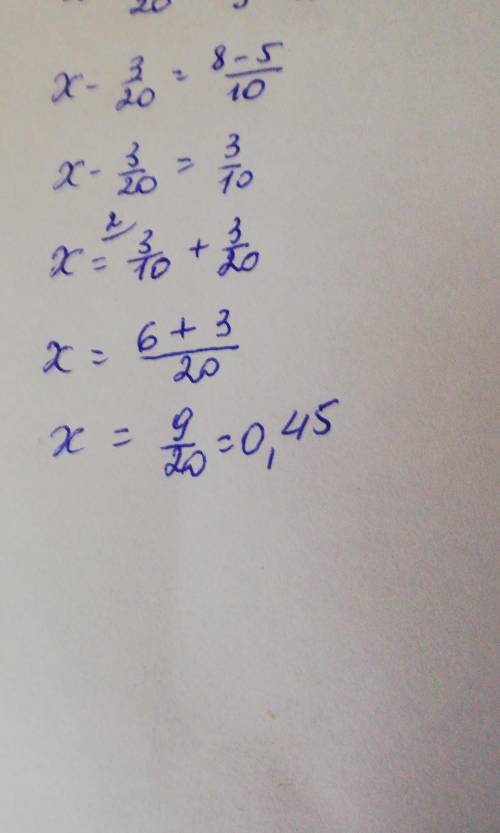 x - 3/20 = (8-5)/10
x - 3/20 = 3/10
x = ²⁄ 3/10 + 3/20
x = (6+3)/20
x = 9/20 = 0,45